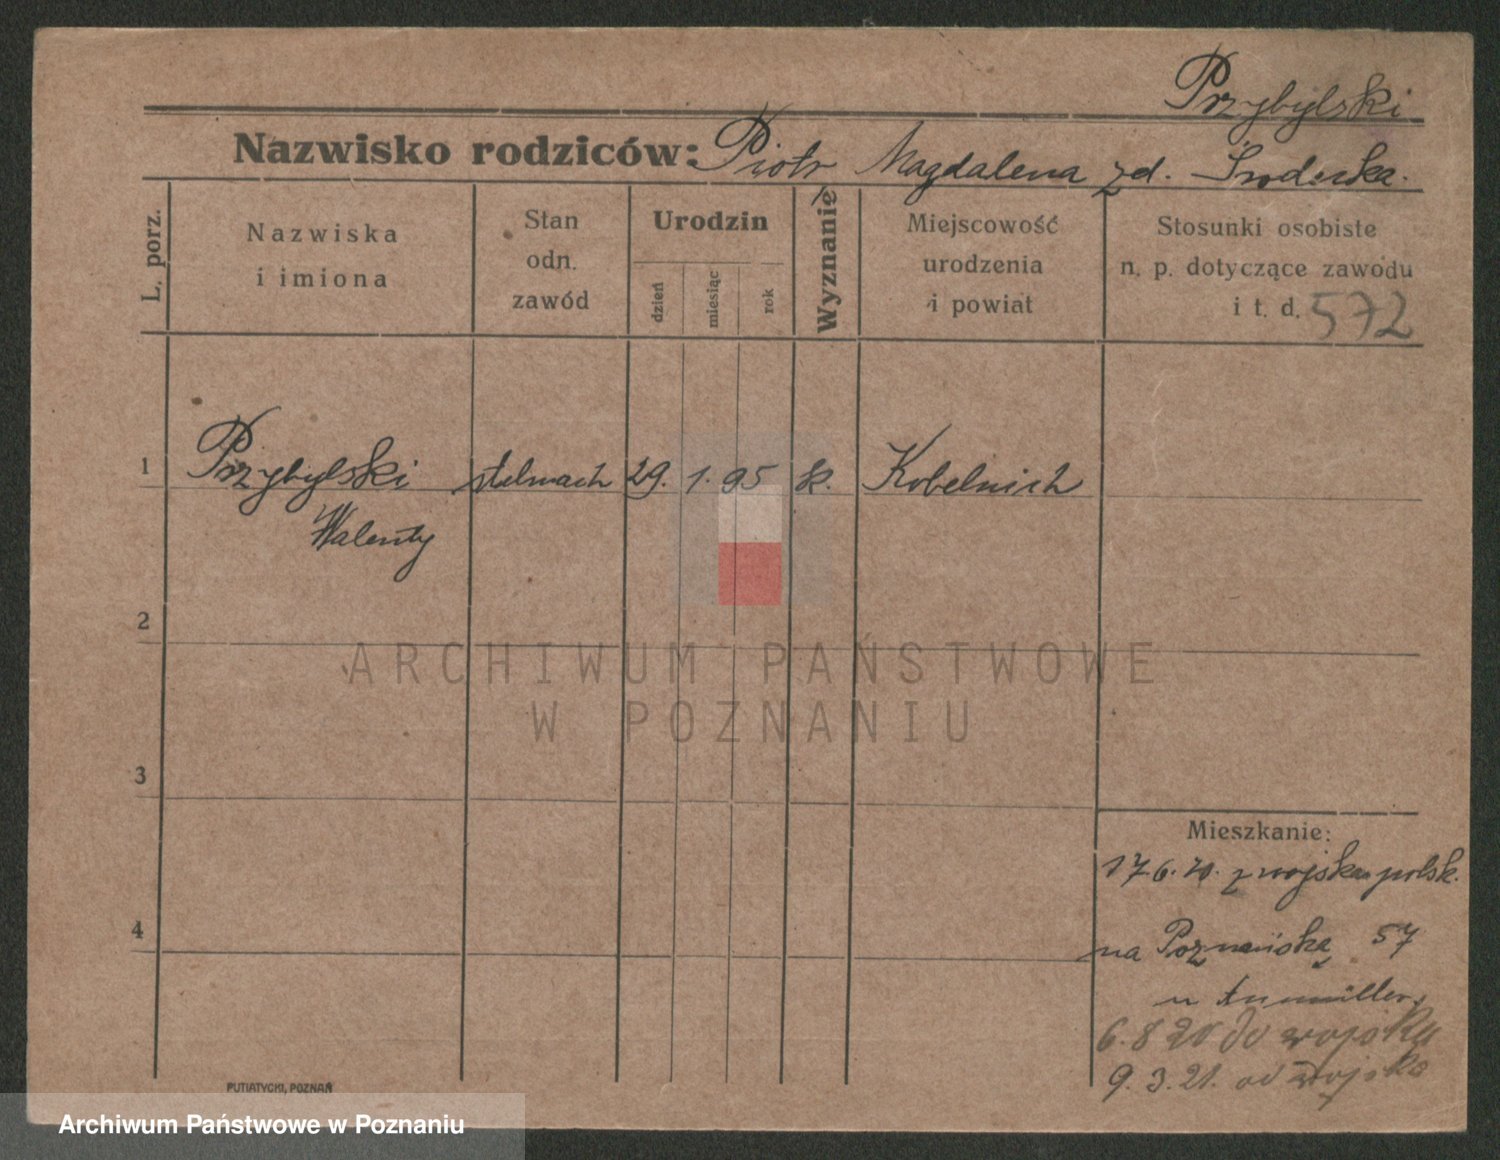 Przybylski
Nazwisko rodziców: Piotr Magdalena zd. Środecka.
L. porz.
Nazwiska
i imiona
Stan
odn.
zawód
Urodzin
dzień
miesiąc
rok
Wyznanie
Miejscowość
urodzenia
i powiat
Stosunki osobiste
n. p. dotyczące zawodu
i t. d. 572
1 Przybylski stelmach 29. 1. 95 k. Kobelnich
Walenty
2
ARCHIWUM PAŃSTWOWE
W POZNANIU
3
Mieszkanie:
17.6.20. z wojska polsk.
4
na Poznańską 57
u
6.8 20 do wojska
9.3.21. od wojska
PUTIATYCKI, POZNAŃ
Archiwum Państwowe w Poznaniu